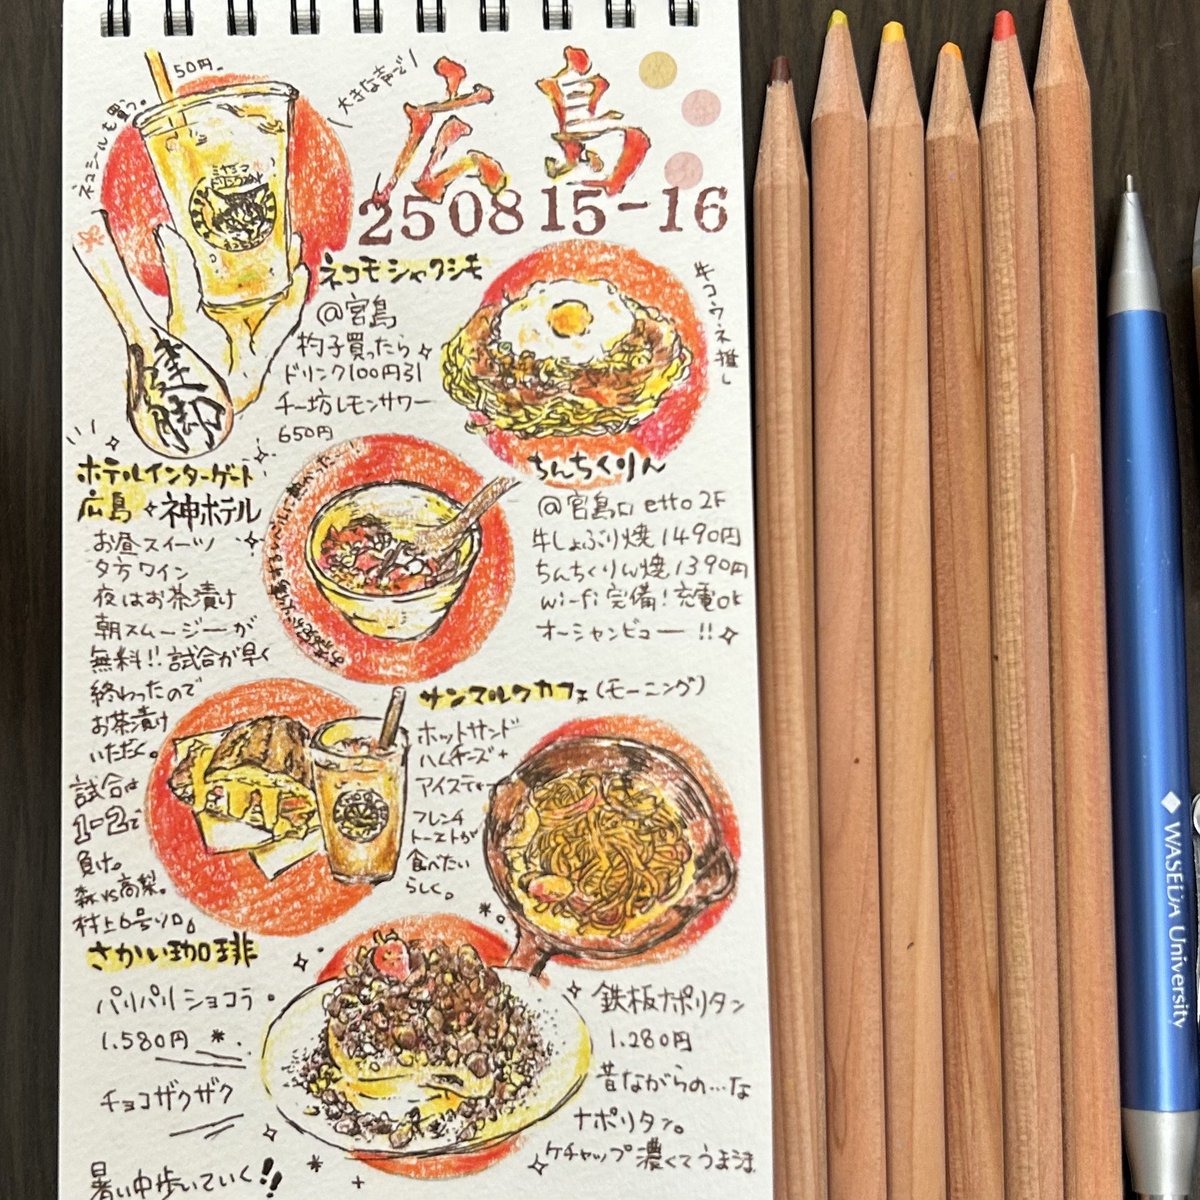 50円。
ネコシールも買う。
大きな声で
広島
250815-16
ミヤジマ
ドリンク
健脚
ネコモシャクシモ
@宮島
杓子買ったら
ドリンク100円引
チー坊レモンサワー
650円
牛コウネ推し
ちんちくりん
@宮島口 etto 2F
牛しょぶり焼1490円
ちんちくりん焼1390円
wi-fi完備!充電OK
オーシャンビュー!!
ホテルインターゲート
広島 神ホテル
お昼スイーツ
夕方ワイン
夜はお茶漬け
朝スムージーが
無料!!試合が早く
終わったので
お茶漬け
いただく。
試合は
1-2で
負け。
森vs高梨。
村上6号ソロ。
サンマルクカフェ(モーニング)
ホットサンド
ハムチーズ+
アイスティー
フレンチ
トーストが
食べたい
らしく。
さかい珈琲
パリパリショコラ。
1.580円
チョコザクザク
鉄板ナポリタン
1.280円
昔ながらの…な
ナポリタン。
ケチャップ濃くてうまうま
暑い中歩いていく!!
WASEDA University